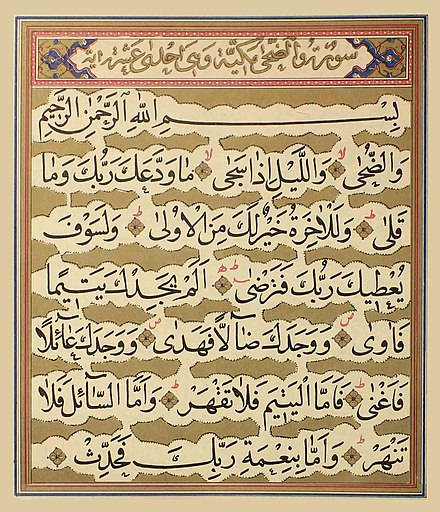 سورة والضحى مكية وهى احدى عشرة اية
بِسْمِ اللهِ الرَّحْمٰنِ الرَّحِيمِ
وَالضُّحٰى وَاللَّيْلِ اِذَا سَجٰى مَا وَدَّعَكَ رَبُّكَ وَمَا
قَلٰى وَلَلْاٰخِرَةُ خَيْرٌ لَكَ مِنَ الْاُولٰى وَلَسَوْفَ
يُعْطِيكَ رَبُّكَ فَتَرْضٰى اَلَمْ يَجِدْكَ يَتِيمًا
فَاٰوٰى وَوَجَدَكَ ضَالًّا فَهَدٰى وَوَجَدَكَ عَائِلًا
فَاَغْنٰى فَاَمَّا الْيَتِيمَ فَلَا تَقْهَرْ وَاَمَّا السَّائِلَ فَلَا
تَنْهَرْ وَاَمَّا بِنِعْمَةِ رَبِّكَ فَحَدِّثْ